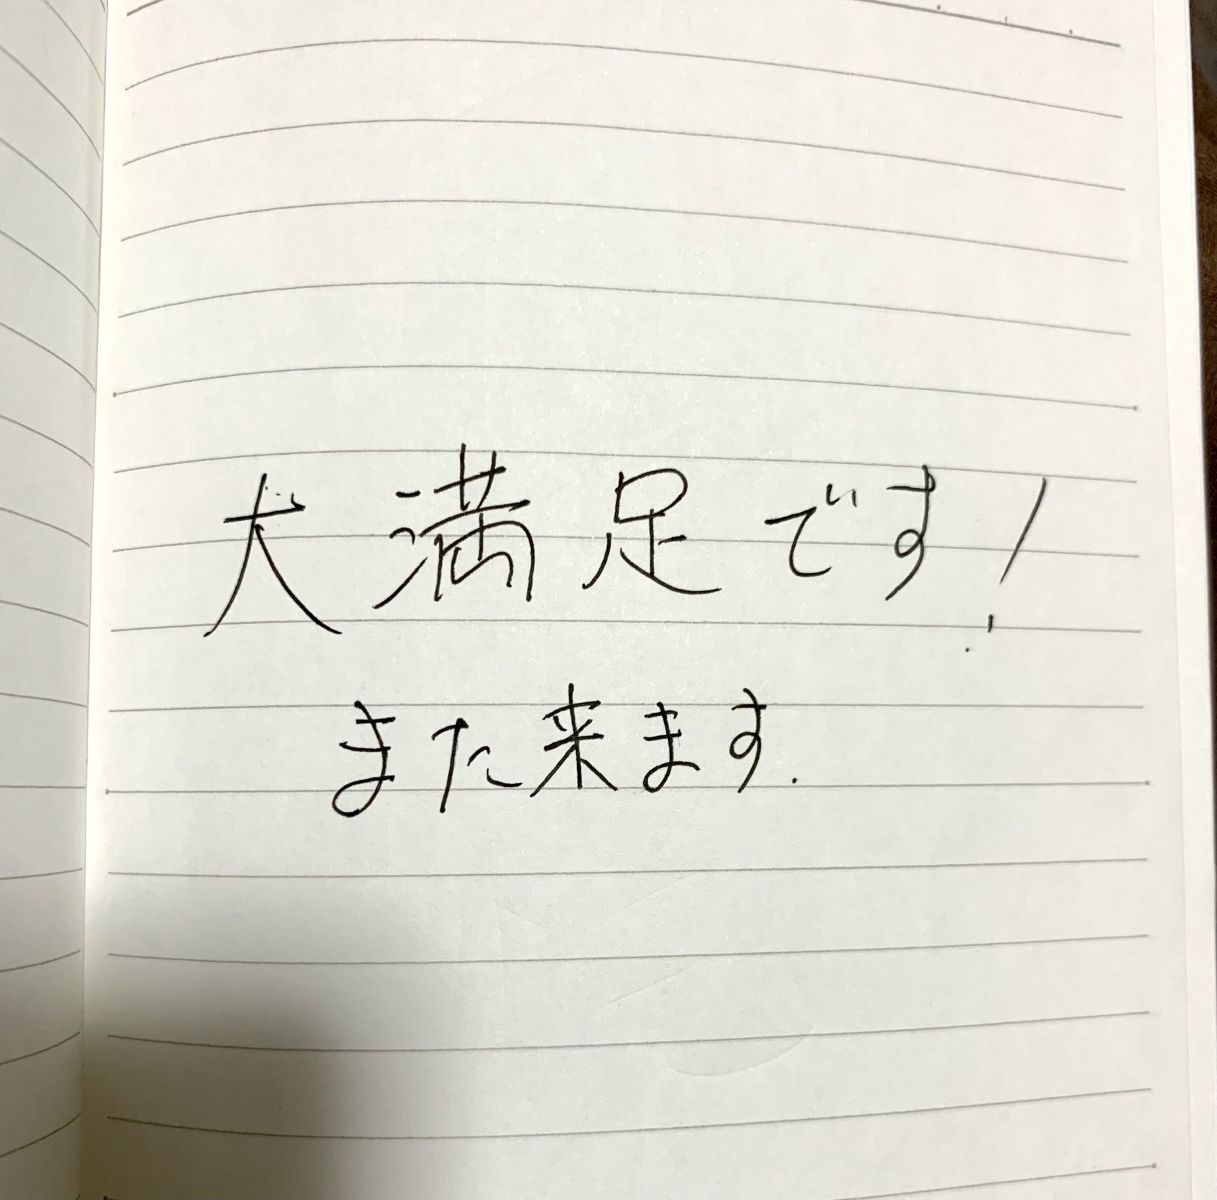 大満足です!
また来ます.